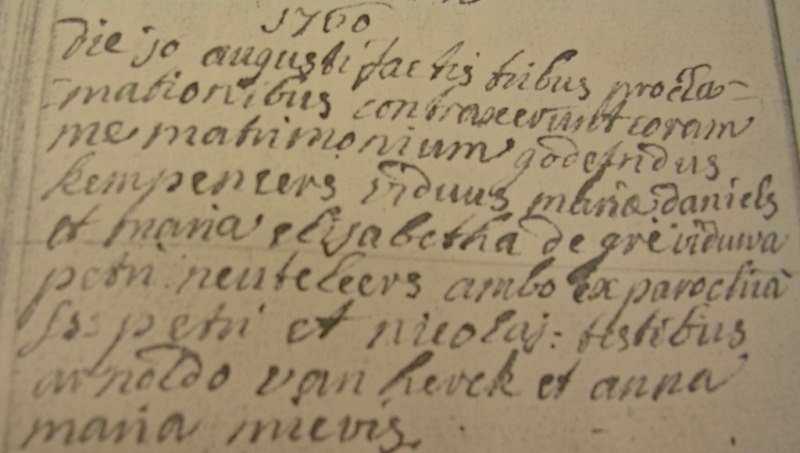 1760
die 10 augusti factis tribus procla-
mationibus contraxerunt coram
me matrimonium godefridus
kempeneers viduus mariæ daniels
et maria elisabetha de gré viduwa
petri neuteleers ambo ex parochia
ss: petri et nicolaj: testibus
arnoldo van herck et anna
maria mievis.